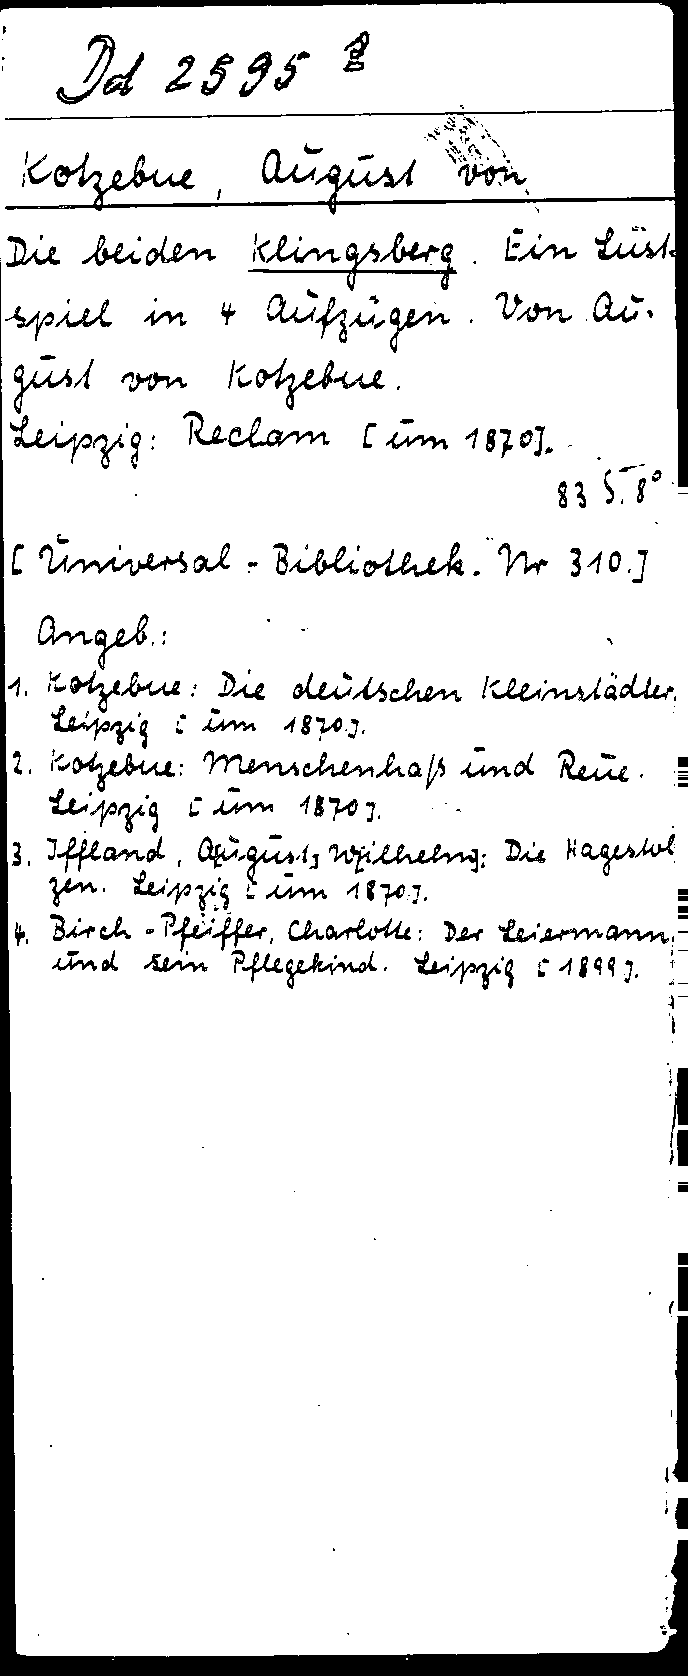 Dd 2595 8
Kotzebue, August von
Die beiden Klingsberg. Ein Lust-
spiel in 4 Aufzügen. Von Au-
gust von Kotzebue.
Leipzig: Reclam [um 1870].
83 S. 8°
[Universal-Bibliothek. Nr 310.]
Angeb.:
1. Kotzebue: Die deutschen Kleinstädter.
Leipzig [um 1870].
2. Kotzebue: Menschenhaß und Reue.
Leipzig [um 1870].
3. Iffland, A[ugust] W[ilhelm]: Die Hagestol
zen. Leipzig [um 1870].
4. Birch-Pfeiffer, Charlotte: Der Leiermann
und sein Pflegekind. Leipzig [1899].